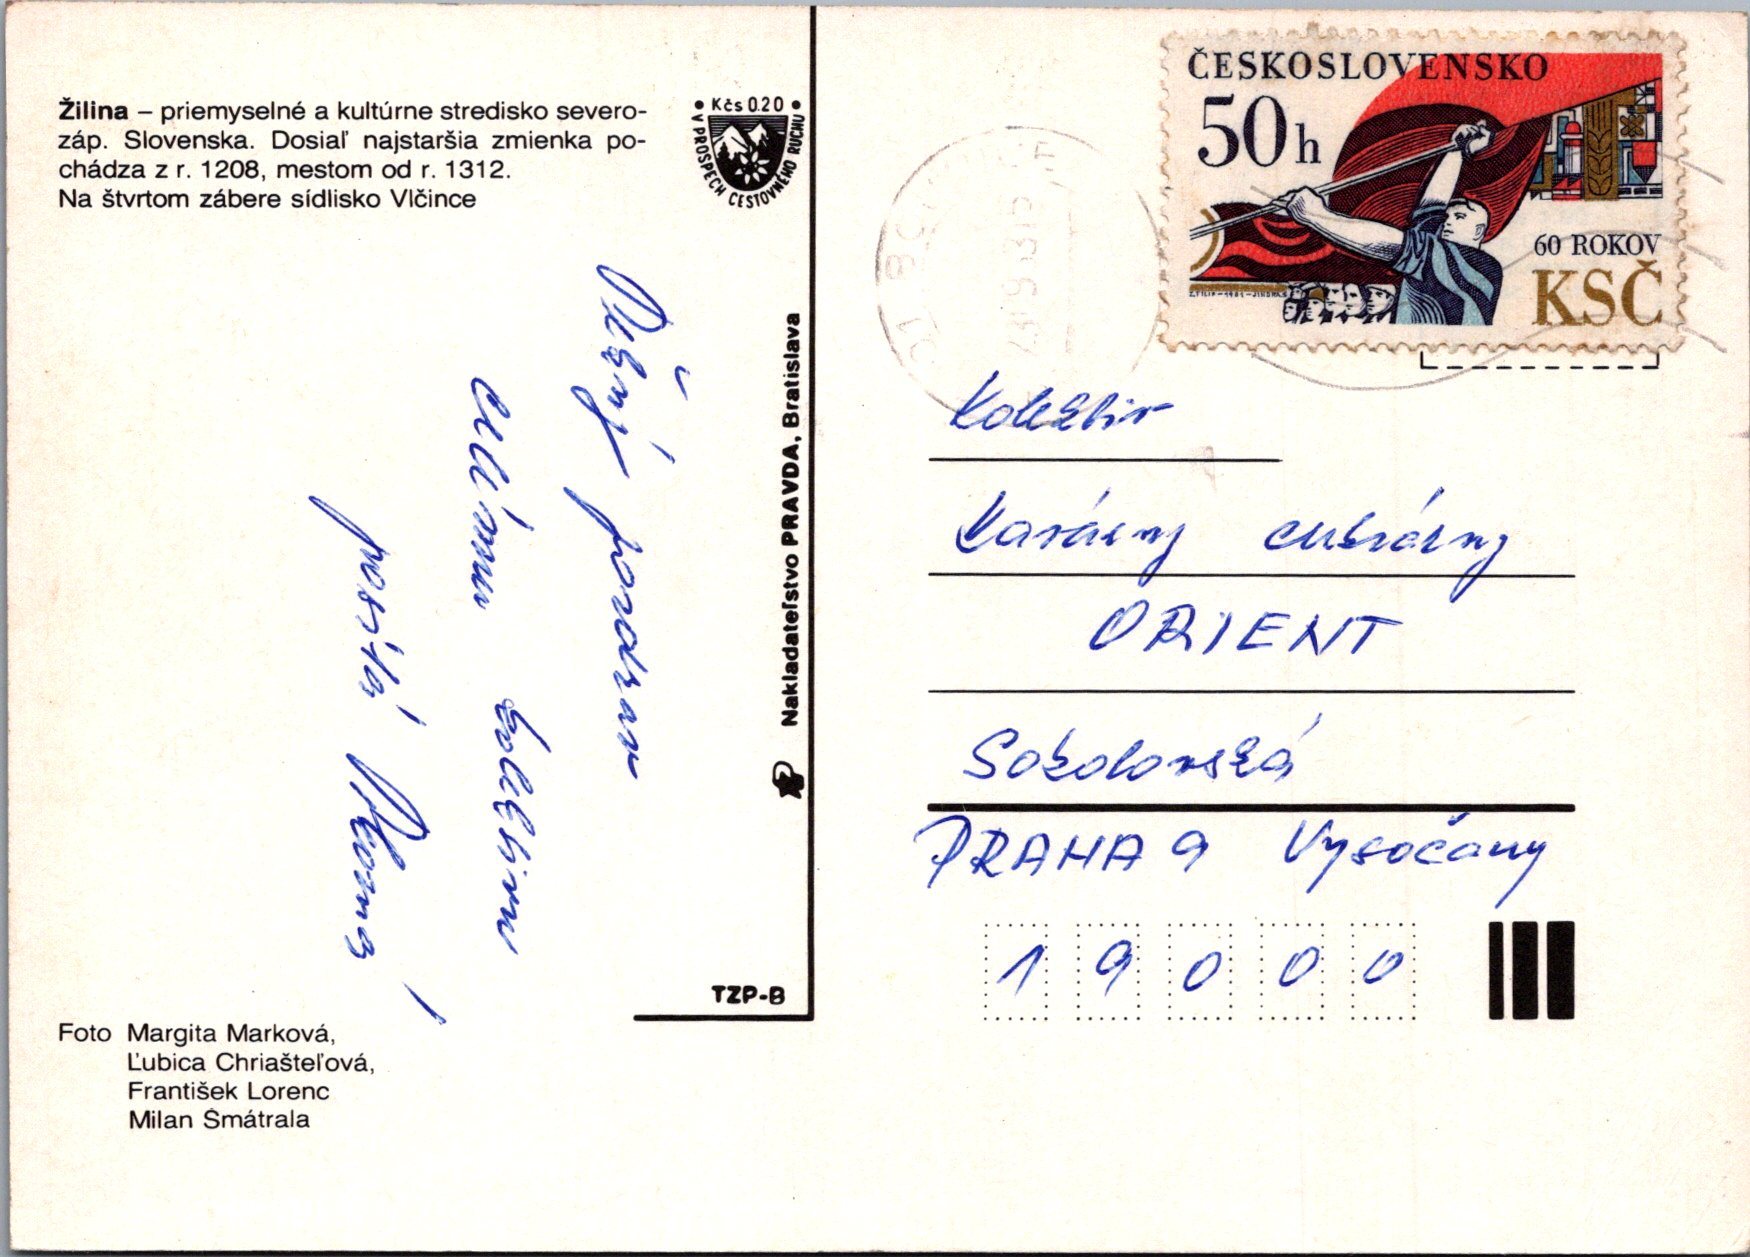 Žilina – priemyselné a kultúrne stredisko severo-
záp. Slovenska. Dosiaľ najstaršia zmienka po-
chádza z r. 1208, mestom od r. 1312.
Na štvrtom zábere sídlisko Vlčince
• Kčs 0.20 •
V PROSPECH CESTOVNÉHO RUCHU
pozdrav
celému kolektivu
posílá
Nakladateľstvo PRAVDA, Bratislava
TZP-B
Foto Margita Marková,
Ľubica Chriašteľová,
František Lorenc
Milan Šmátrala
ČESKOSLOVENSKO
50 h
60 ROKOV
KSČ
Z.FILIP – 1981 – JINDRA.S
Kolektiv
Kavárny cukrárny
ORIENT
Sokolovská
PRAHA 9 Vysočany
19000